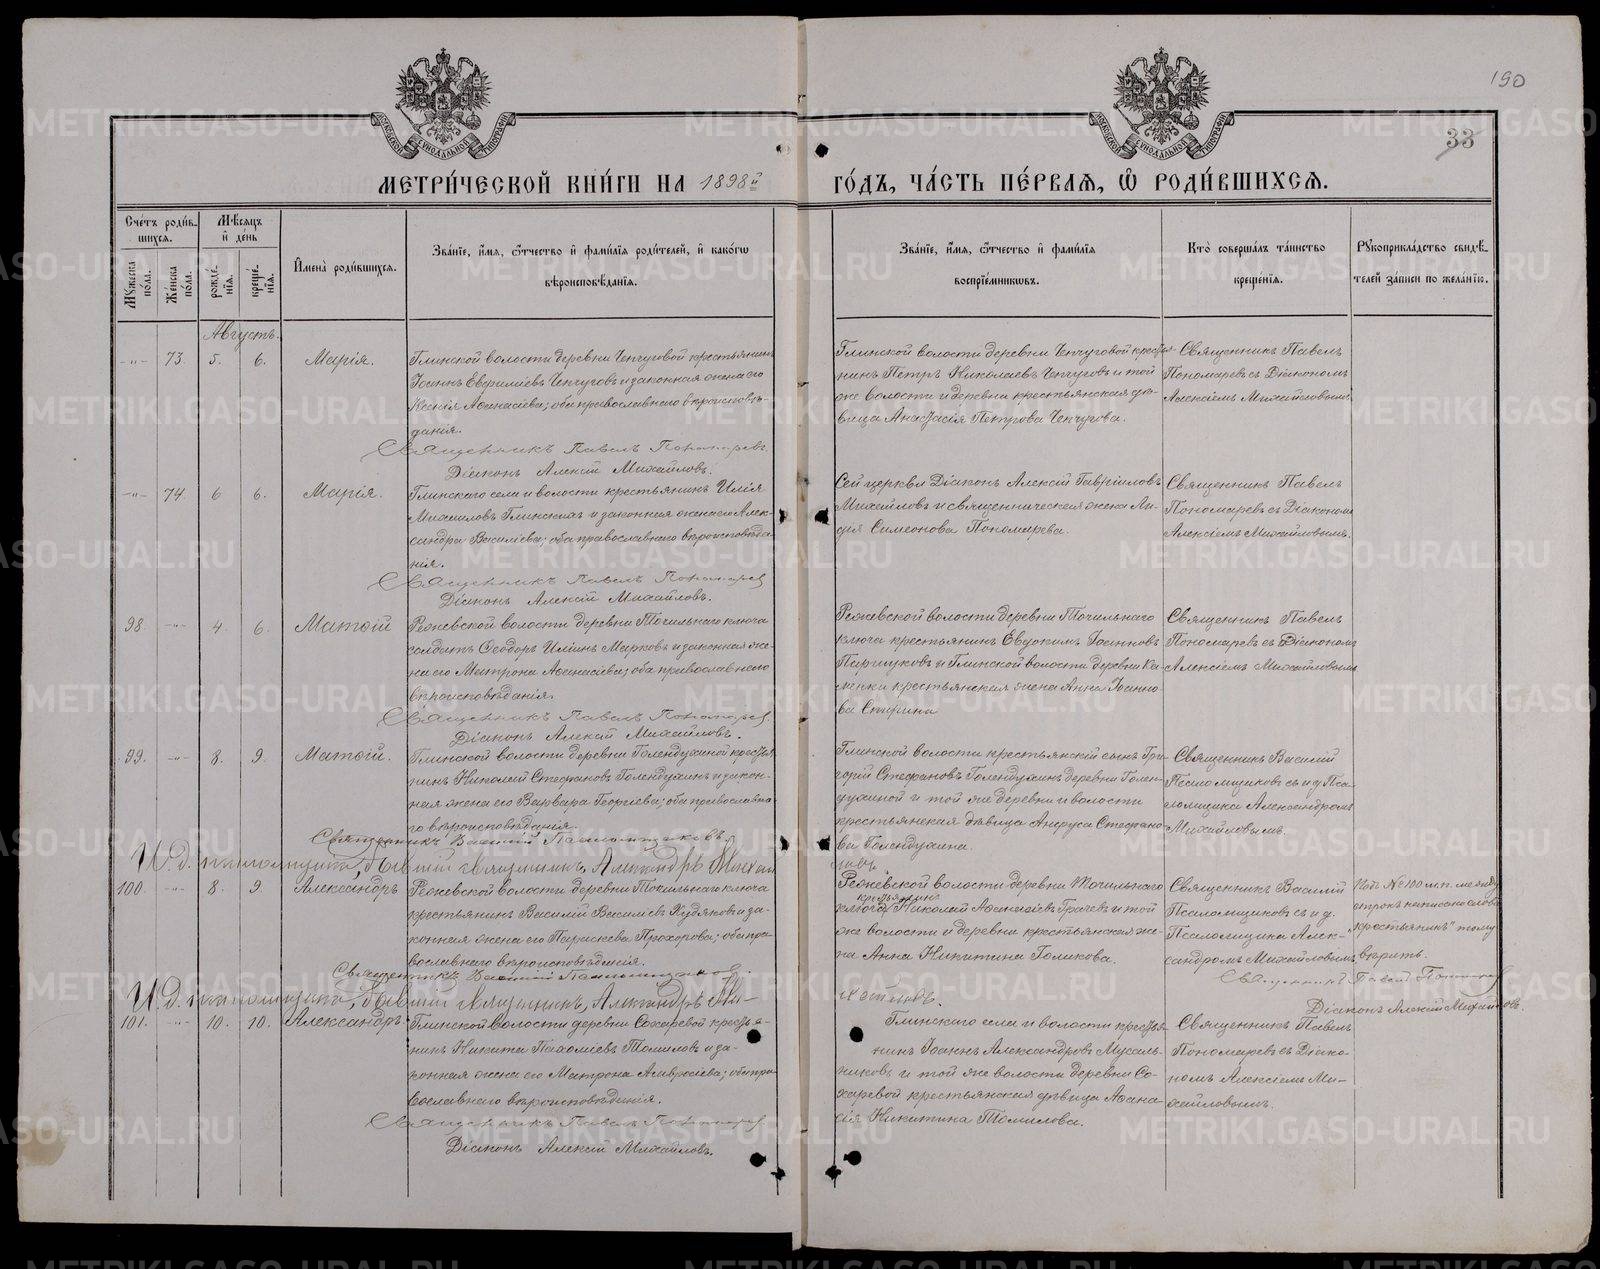 190
33
МЕТРИ́ЧЕСКОЙ КНИ́ГИ НА 1898й ГО́ДЪ, ЧА́СТЬ ПЕ́РВАЯ, Ѿ РОДИ́ВШИХСЯ.
Сче́тъ роди́вшихся.
Мꙋжеска по́ла.
Же́нска по́ла.
Мѣ́сяцъ и҆ де́нь
рожде́нїя.
креще́нїя.
И҆мена̀ роди́вшихся.
Зва́нїе, и҆́мя, ѻ҆́тчество и҆ фами́лїя роди́телей, и҆ како́гѡ
вѣроисповѣ́данїя.
Зва́нїе, и҆́мя, ѻ҆́тчество и҆ фами́лїя
воспрїе́мникѡвъ.
Кто̀ соверша́лъ та́инство
креще́нїя.
Рꙋкоприкла́дство свидѣ́телей за́писи по жела́нїю.
Августъ.
-"- 73. 5. 6. Марія.
Глинской волости деревни Чепчуговой крестьянинъ
Іоаннъ Евфиміевъ Чепчуговъ и законная жена его
Ксенія Аѳанасіева; оба православнаго вѣроисповѣ-
данія.
Священникъ Павелъ Пономаревъ
Діаконъ Алексій Михайловъ.
Глинской волости деревни Чепчуговой кресть-
нинъ Петръ Николаевъ Чепчуговъ и той
же волости и деревни крестьянская дѣ-
вица Анастасія Петрова Чепчугова.
Священникъ Павелъ
Пономаревъ съ Діакономъ
Алексіемъ Михайловымъ
-"- 74. 6 6. Марія.
Глинскаго села и волости крестьянинъ Илія
Михаиловъ Глинскихъ и законная жена его Алек-
сандра Василіева; оба православнаго вѣроисповѣда-
нія.
Священникъ Павелъ Пономаревъ
Діаконъ Алексій Михайловъ.
Сей церкви Діаконъ Алексій Гавріиловъ
Михайловъ и священническая жена Ли-
дія Симеонова Пономарева.
Священникъ Павелъ
Пономаревъ съ Діакономъ
Алексіемъ Михайловымъ.
98. -"- 4. 6. Матѳій
Режевской волости деревни Точильнаго ключа
солдатъ Ѳеодоръ Иліинъ Марковъ и законная же-
на его Матрона Аѳанасіева; оба православнаго
вѣроисповѣданія.
Священникъ Павелъ Пономаревъ
Діаконъ Алексій Михайловъ.
Режевской волости деревни Точильнаго
ключа крестьянинъ Евдокимъ Іоанновъ
и Глинской волости деревни Ка-
менки крестьянская жена Анна Іоанно-
ва
Священникъ Павелъ
Пономаревъ съ Діакономъ
Алексіемъ Михайловымъ
99. -"- 8. 9. Матѳій.
Глинской волости деревни Голендухиной крестья-
нинъ Николай Стефановъ Голендухинъ и закон-
ная жена его Варвара Георгіева; оба православна-
го вѣроисповѣданія.
Священникъ Василій Псаломщиковъ
И. д. псаломщика, бывшій священникъ, Александръ Михай
Глинской волости крестьянскій сынъ Гри-
горій Стефановъ Голендухинъ деревни Голен-
духиной и той же деревни и волости
крестьянская дѣвица Стефано-
ва Голендухина.
ловъ
Священникъ Василій
Псаломщиковъ съ и д Пса-
ломщика Александромъ
Михайловымъ.
100. -"- 8. 9. Александръ
Режевской волости деревни Точильнаго ключа
крестьянинъ Василій Василіевъ Худяковъ и за-
конная жена его Параскева Прохорова; оба пра-
вославнаго вѣроисповѣданія.
Священникъ Василій Псаломщиковъ
И. д. псаломщика, бывшій священникъ, Александръ Ми-
Режевской волости деревни Точильнаго
крестьянинъ
ключа Николай Аѳанасіевъ Грачевъ и той
же волости и деревни крестьянская же-
на Анна Никитина Голикова.
хайловъ.
Священникъ Василій
Псаломщиковъ съ и д.
Псаломщика Алек-
сандромъ Михайловымъ
Подъ № 100 м. п. между
строкъ написано слово
"крестьянинъ" тому
вѣрить.
Священникъ Павелъ Пономарев
Діаконъ Алексій Михайловъ.
101. -"- 10. 10. Александръ.
Глинской волости деревни Сохаревой крестья-
нинъ Никита Пахоміевъ Томиловъ и за-
конная жена его Матрона; оба пра-
вославнаго вѣроисповѣданія.
Священникъ Павелъ Пономарев
Діаконъ Алексій Михайловъ.
Глинскаго села и волости крестья-
нинъ Іоаннъ Александровъ Мусаль-
никовъ и той же волости деревни Со-
харевой крестьянская дѣвица Аѳана-
сія Никитина Томилова.
Священникъ Павелъ
Пономаревъ съ Діако-
номъ Алексіемъ Ми-
хайловымъ.